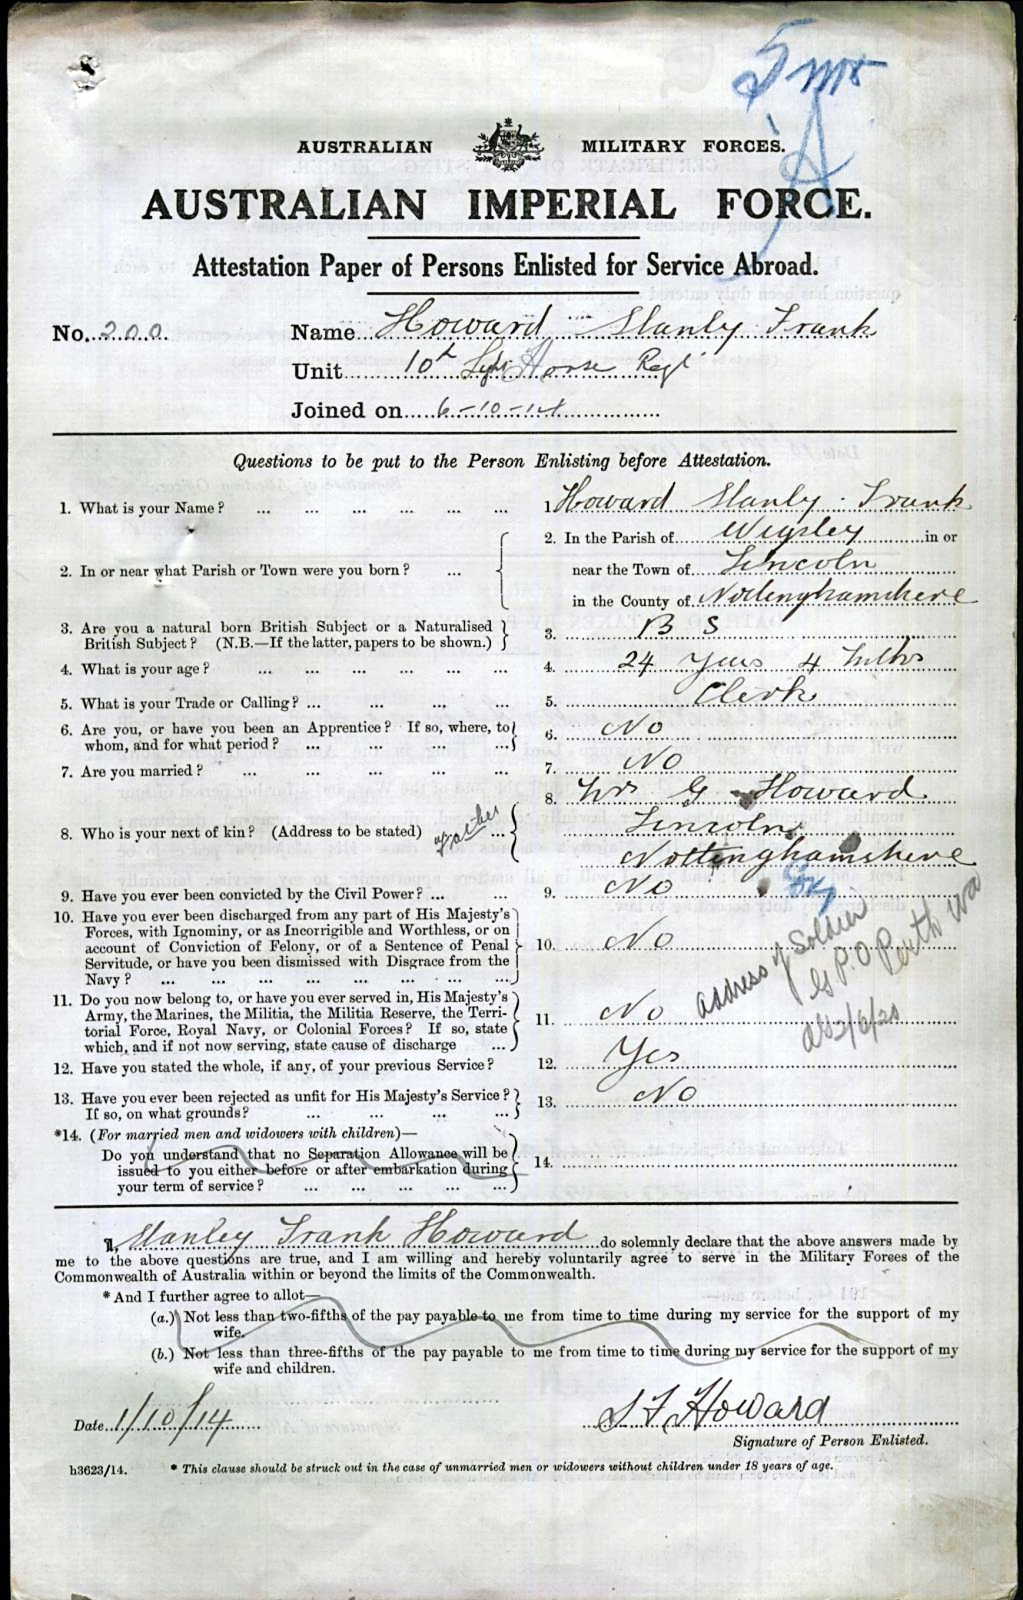 5 mo
A
AUSTRALIAN MILITARY FORCES.
AUSTRALIAN IMPERIAL FORCE.
Attestation Paper of Persons Enlisted for Service Abroad.
No. 200. Name Howard Stanly Frank
Unit 10th Light Horse Regt
Joined on 6-10-14
Questions to be put to the Person Enlisting before Attestation.
1. What is your Name? ... ... ... ... ... ... 1. Howard Stanly Frank
2. In or near what Parish or Town were you born? ... 2. In the Parish of Wigsley in or
near the Town of Lincoln
in the County of Nottinghamshire
3. Are you a natural born British Subject or a Naturalised British Subject? (N.B.—If the latter, papers to be shown.) 3. B S
4. What is your age? ... ... ... ... ... ... 4. 24 years 4 Mths
5. What is your Trade or Calling? ... ... ... ... 5. Clerk
6. Are you, or have you been an Apprentice? If so, where, to
whom, and for what period? ... ... ... ... 6. No
7. Are you married? ... ... ... ... ... 7. No
8. Who is your next of kin? (Address to be stated) Father ... 8. Mr G Howard
Lincoln
Nottinghamshire
9. Have you ever been convicted by the Civil Power? ... ... 9. No
10. Have you ever been discharged from any part of His Majesty's
Forces, with Ignominy, or as Incorrigible and Worthless, or on
account of Conviction of Felony, or of a Sentence of Penal
Servitude, or have you been dismissed with Disgrace from the
Navy? ... ... ... ... ... ... ... 10. No
address of Soldier
G.P.O. Perth Wa
2/6/20
11. Do you now belong to, or have you ever served in, His Majesty's
Army, the Marines, the Militia, the Militia Reserve, the Terri-
torial Force, Royal Navy, or Colonial Forces? If so, state
which, and if not now serving, state cause of discharge ... 11. No
12. Have you stated the whole, if any, of your previous Service? 12. Yes
13. Have you ever been rejected as unfit for His Majesty's Service?
If so, on what grounds? ... ... ... ... ... 13. No
*14. (For married men and widowers with children)—
Do you understand that no Separation Allowance will be
issued to you either before or after embarkation during
your term of service? ... ... ... ... ... 14.
I, Stanley Frank Howard do solemnly declare that the above answers made by
me to the above questions are true, and I am willing and hereby voluntarily agree to serve in the Military Forces of the
Commonwealth of Australia within or beyond the limits of the Commonwealth.
* And I further agree to allot—
(a.) Not less than two-fifths of the pay payable to me from time to time during my service for the support of my
wife.
(b.) Not less than three-fifths of the pay payable to me from time to time during my service for the support of my
wife and children.
Date 1/10/14 S F Howard
Signature of Person Enlisted.
h3623/14. * This clause should be struck out in the case of unmarried men or widowers without children under 18 years of age.